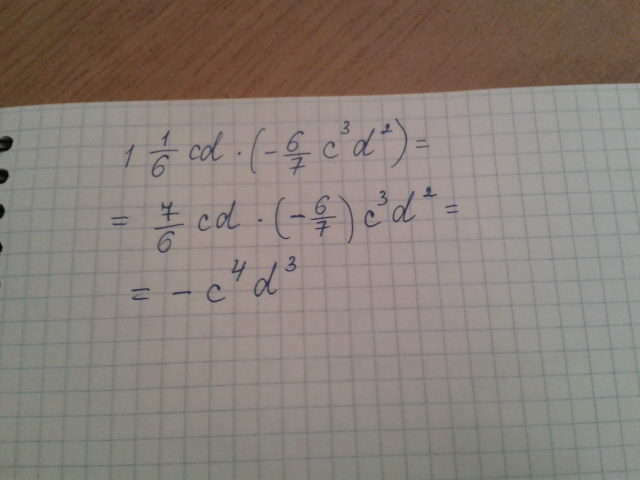 1 1/6 cd · (− 6/7 c³d²) =
= 7/6 cd · (− 6/7) c³d² =
= − c⁴d³